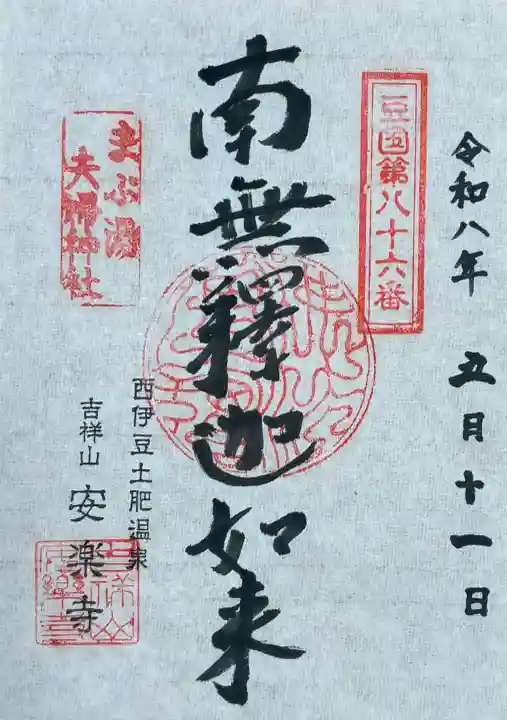 令和八年 五月十一日
豆国第八十六番
南無釋迦如来
まぶ湯
夫婦神社
西伊豆土肥温泉
吉祥山 安楽寺